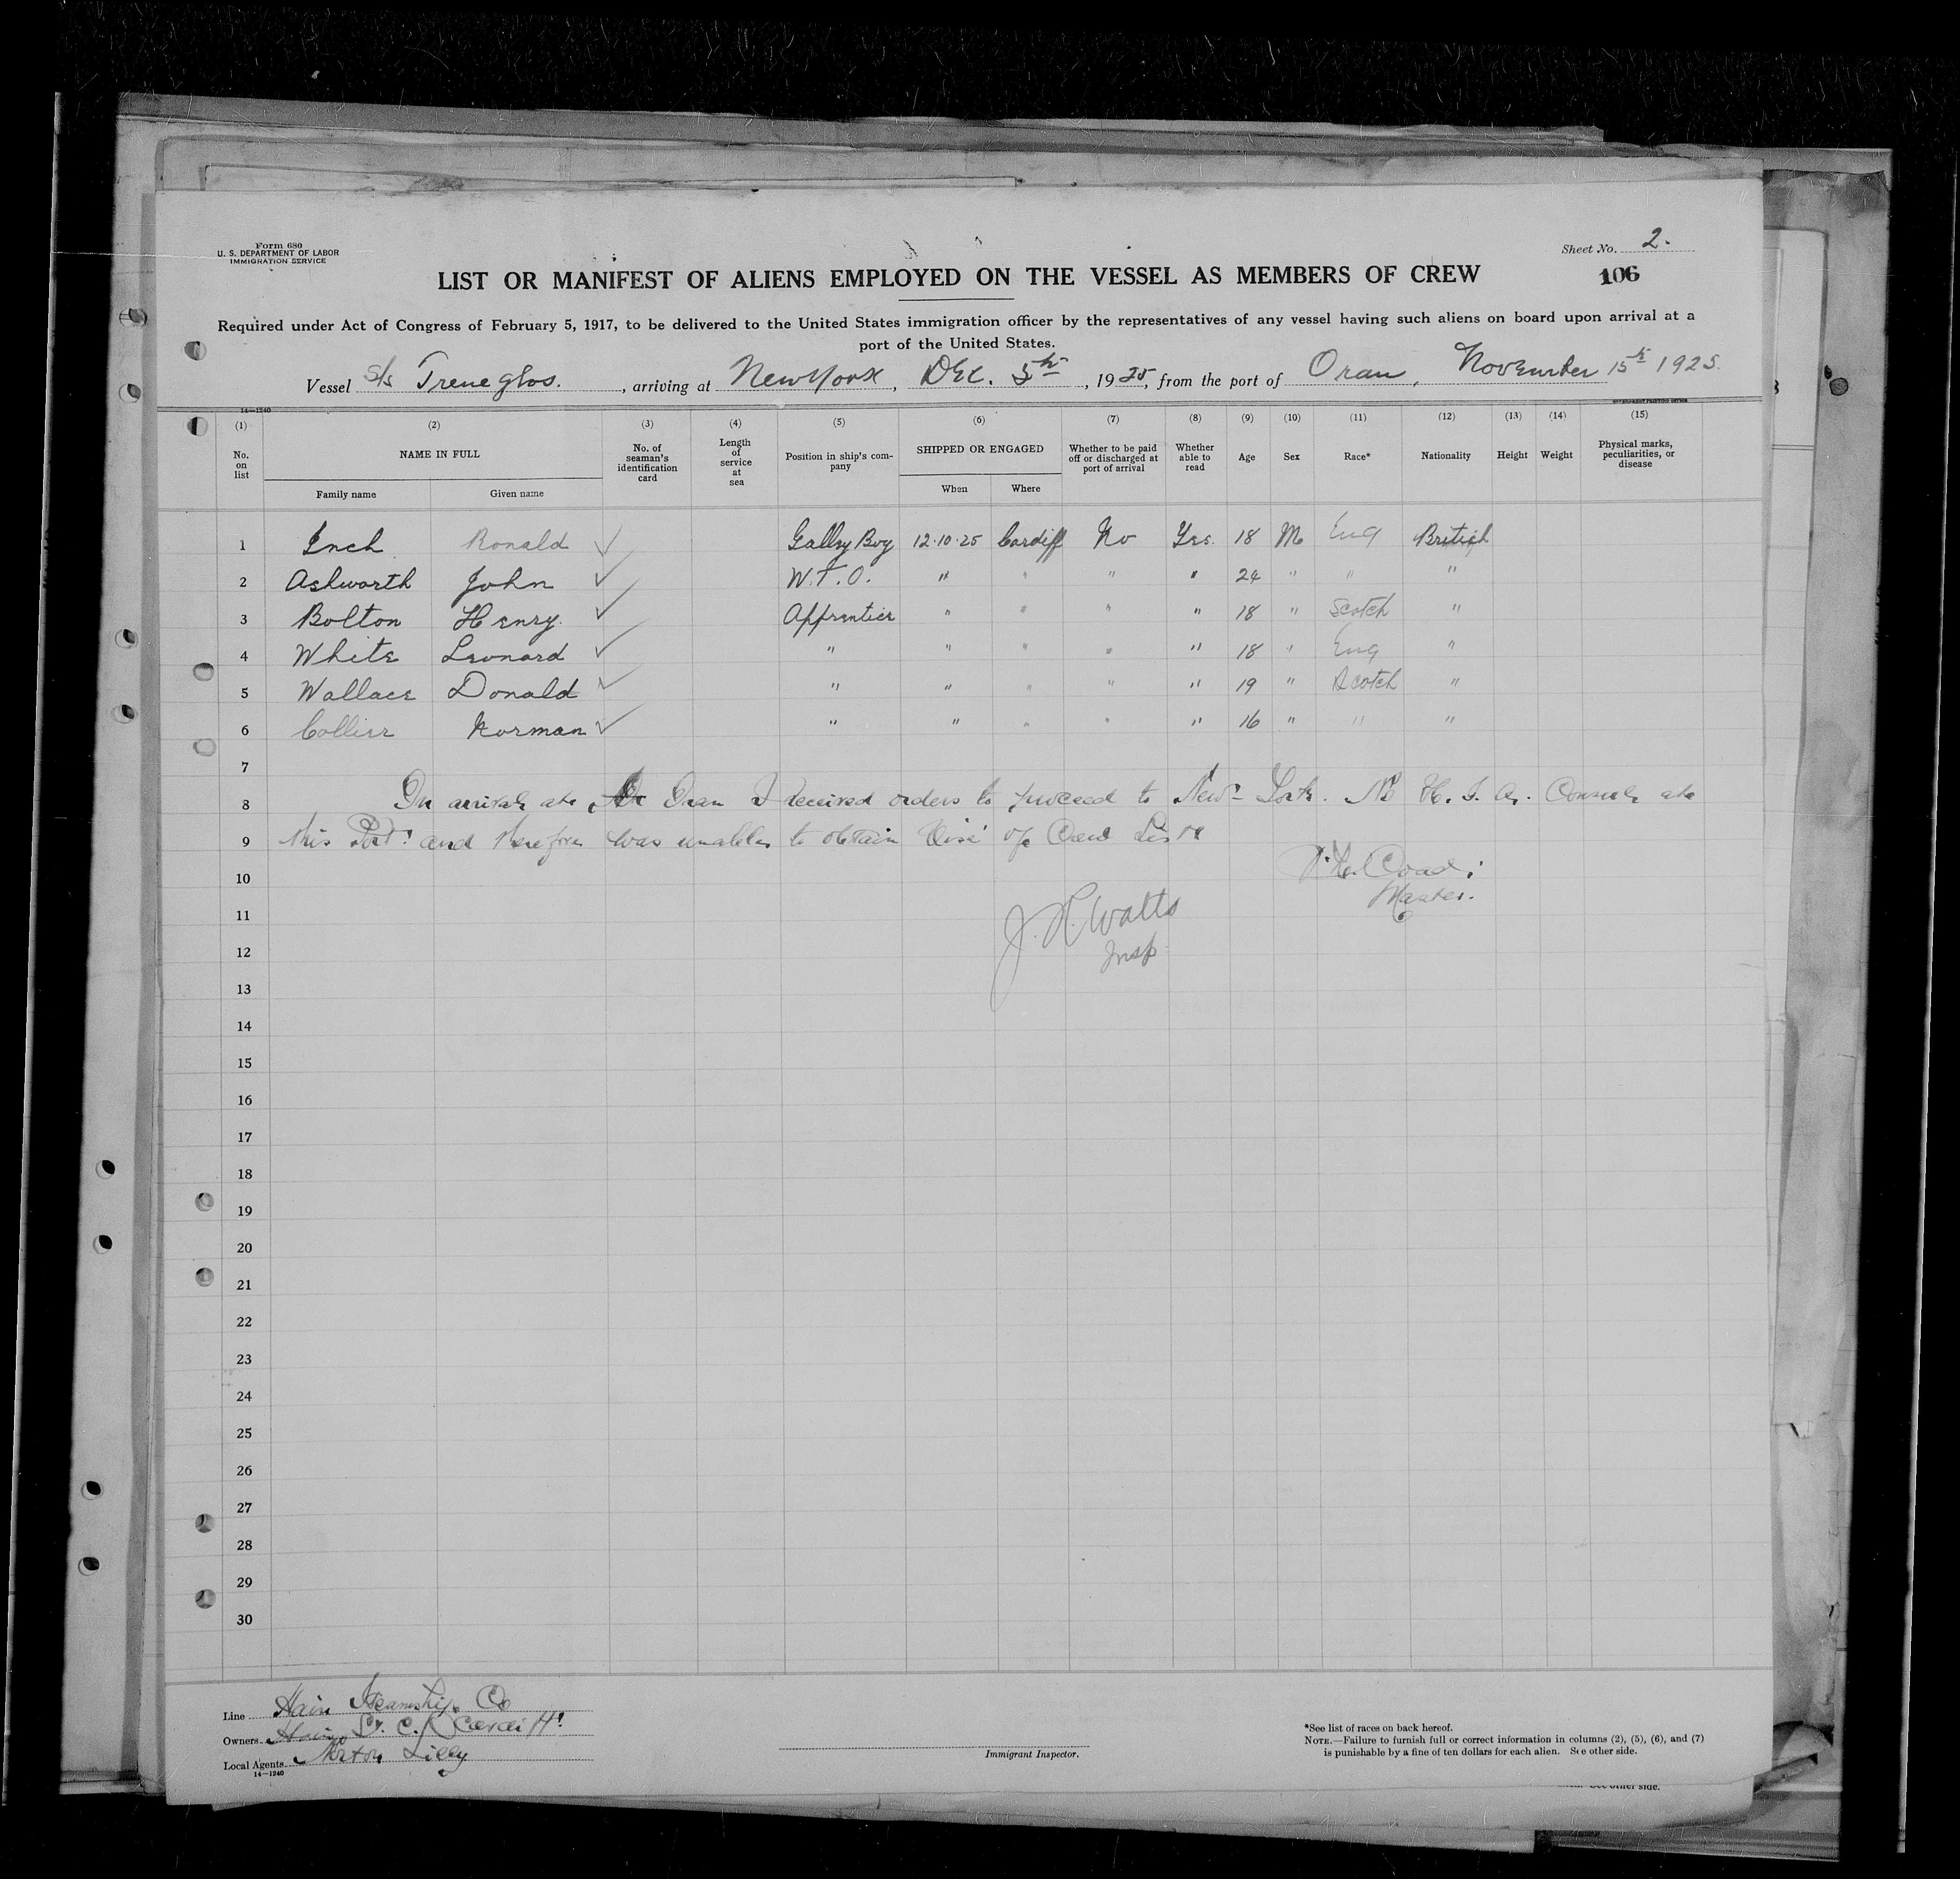 Form 680
U. S. DEPARTMENT OF LABOR
IMMIGRATION SERVICE
Sheet No. 2.
LIST OR MANIFEST OF ALIENS EMPLOYED ON THE VESSEL AS MEMBERS OF CREW
106
Required under Act of Congress of February 5, 1917, to be delivered to the United States immigration officer by the representatives of any vessel having such aliens on board upon arrival at a
port of the United States.
Vessel S/s Treneglos., arriving at New York, Dec. 5th, 1925, from the port of Oran, November 15th 1925.
14—1240
(1) (2) (3) (4) (5) (6) (7) (8) (9) (10) (11) (12) (13) (14) (15)
No. on list NAME IN FULL No. of seaman's identification card Length of service at sea Position in ship's company SHIPPED OR ENGAGED Whether to be paid off or discharged at port of arrival Whether able to read Age Sex Race* Nationality Height Weight Physical marks, peculiarities, or disease
Family name Given name When Where
1 Inch Ronald ✓ Galley Boy 12.10.25 Cardiff No Yes. 18 M Eng British
2 Ashworth John ✓ W.T.O. " " " " 24 " " "
3 Bolton Henry. ✓ Apprentice " " " " 18 " Scotch "
4 White Leonard ✓ " " " " " 18 " Eng "
5 Wallace Donald ✓ " " " " " 19 " Scotch "
6 Collier Norman ✓ " " " " " 16 " " "
7
8 On arrival at Oran I received orders to proceed to New York. No Consul at
9 this Port and therefore was unable to obtain Visé of Crew List
10 Coad
Master.
11 J. H. Watts
12 Insp.
13
14
15
16
17
18
19
20
21
22
23
24
25
26
27
28
29
30
Line Hain Steamship Co
Owners Hain Cardiff
Local Agents Norton Lilly
14—1240
Immigrant Inspector.
*See list of races on back hereof.
NOTE.—Failure to furnish full or correct information in columns (2), (5), (6), and (7)
is punishable by a fine of ten dollars for each alien. See other side.
See other side.